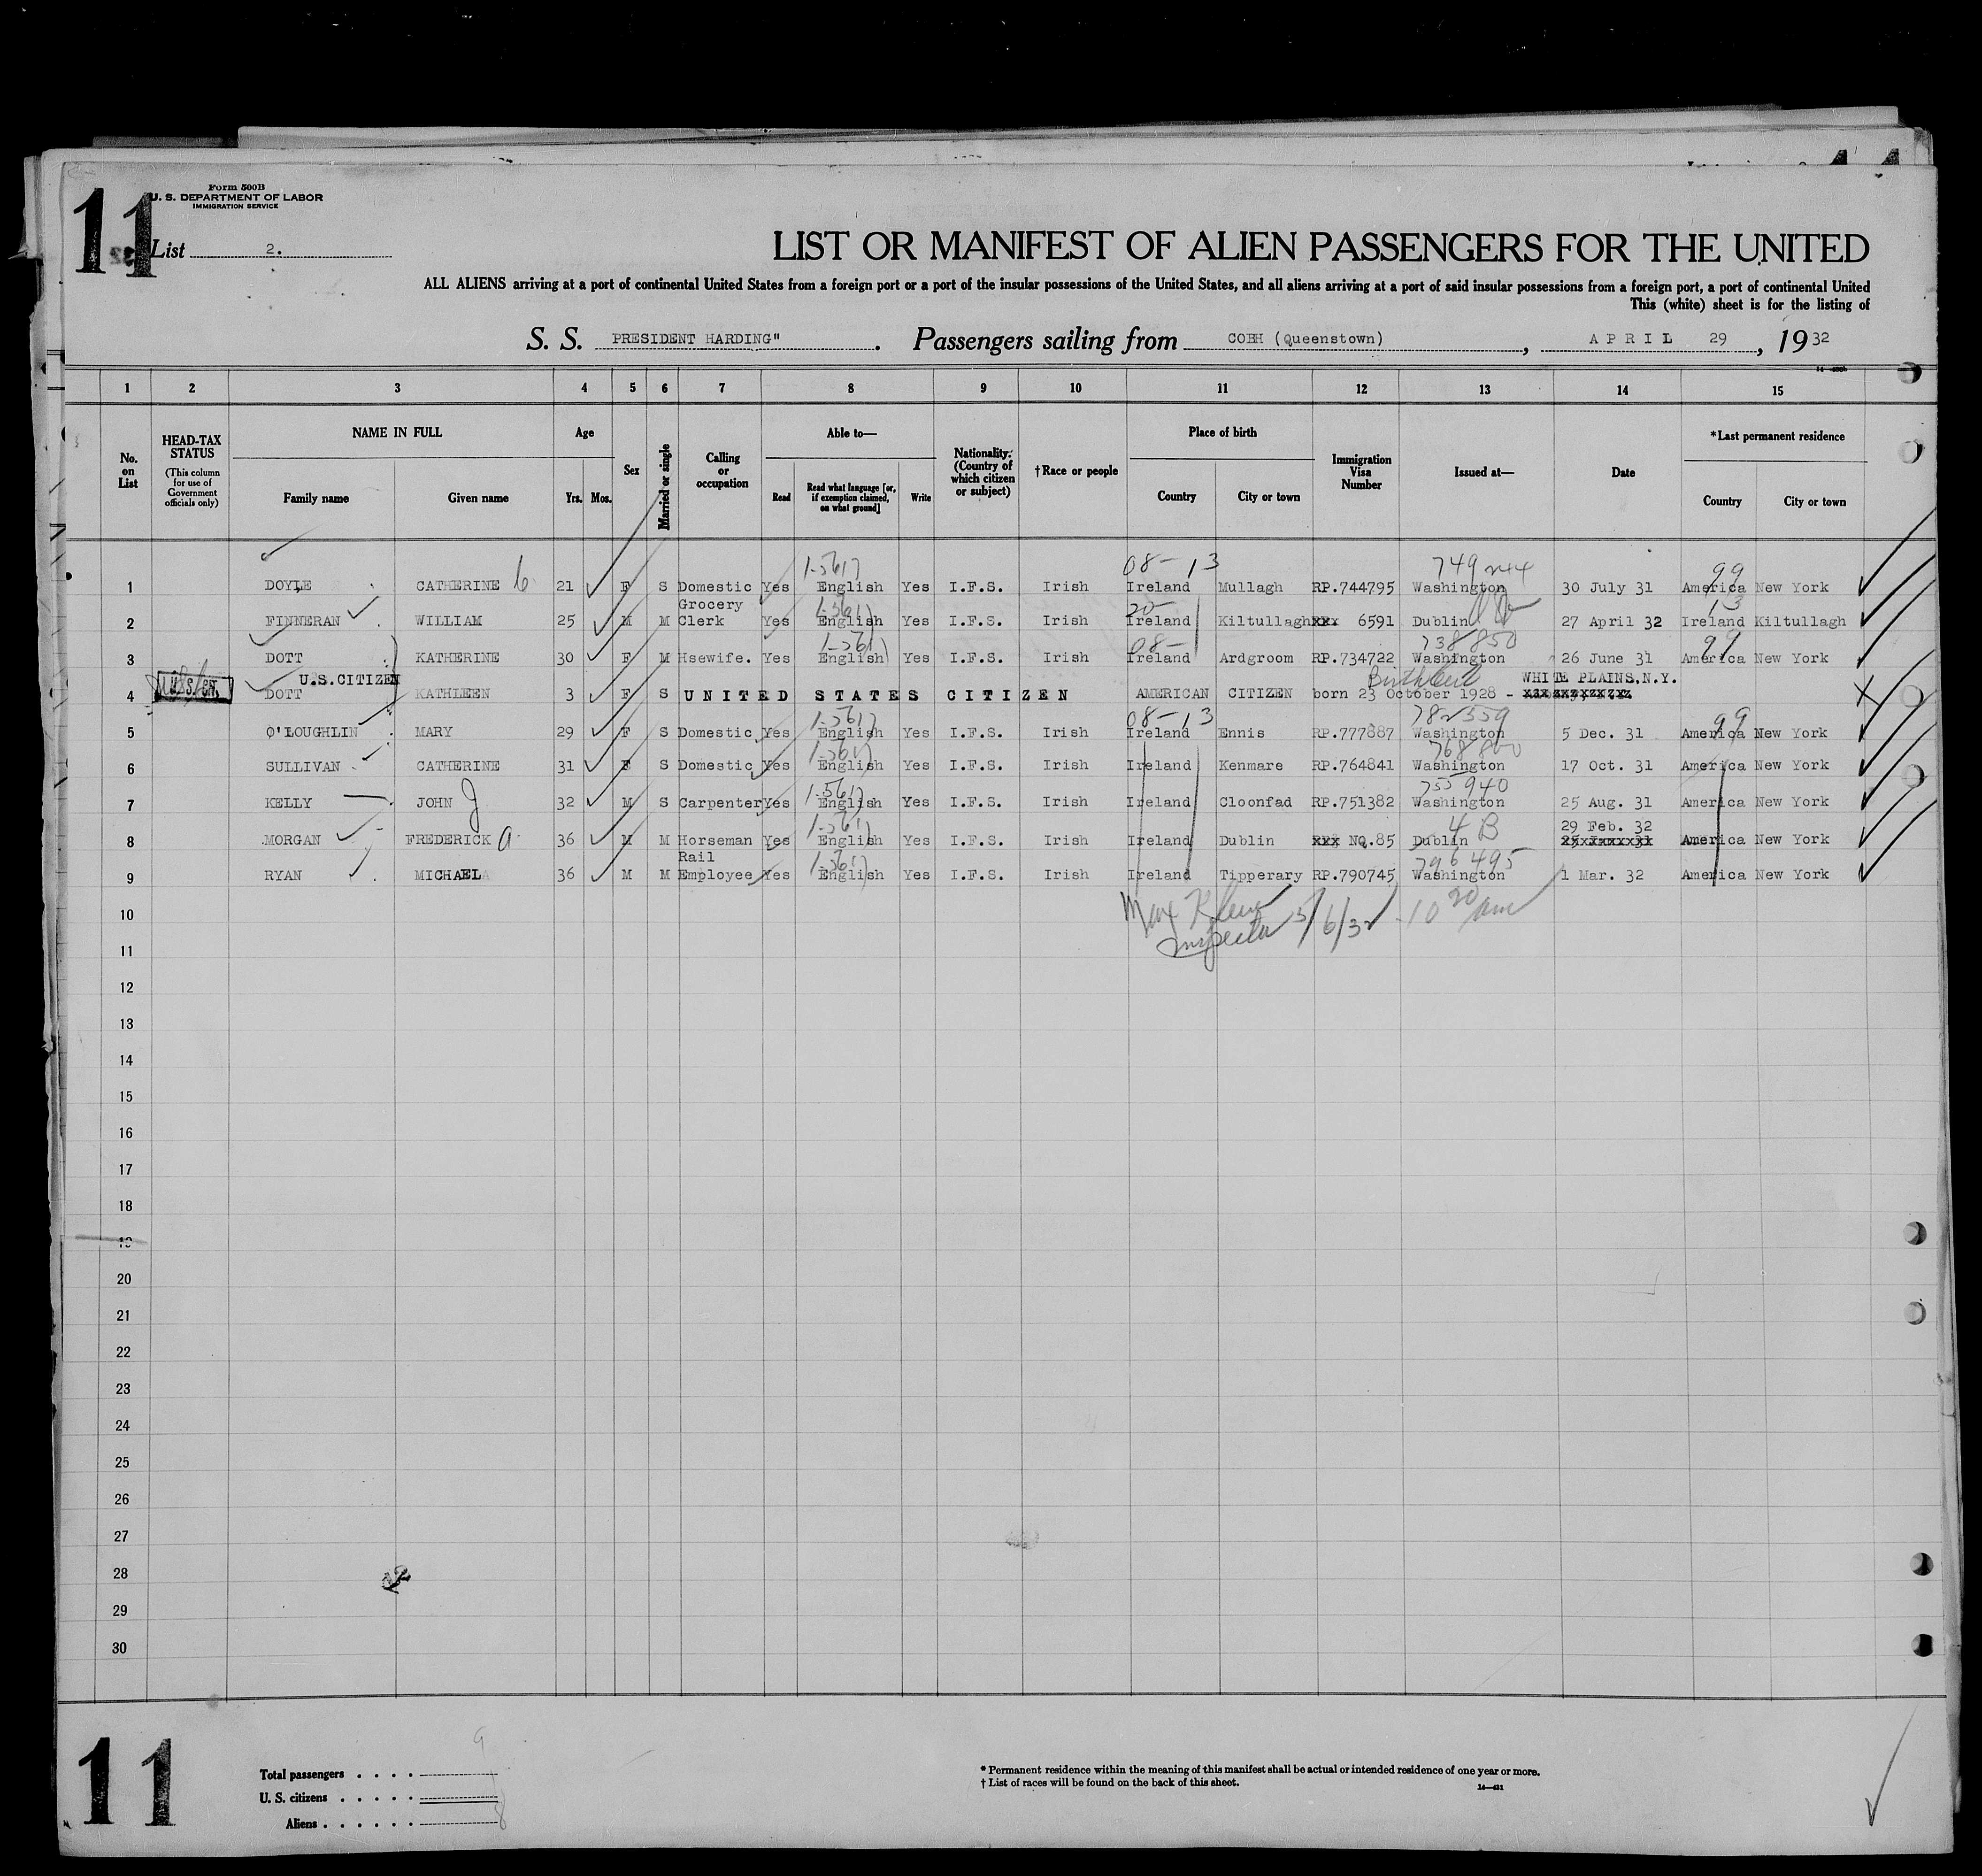 11
Form 500B
U. S. DEPARTMENT OF LABOR
IMMIGRATION SERVICE
List 2.
LIST OR MANIFEST OF ALIEN PASSENGERS FOR THE UNITED
ALL ALIENS arriving at a port of continental United States from a foreign port or a port of the insular possessions of the United States, and all aliens arriving at a port of said insular possessions from a foreign port, a port of continental United
This (white) sheet is for the listing of
S. S. PRESIDENT HARDING" . Passengers sailing from COBH (Queenstown) , APRIL 29 , 19 32
1 2 3 4 5 6 7 8 9 10 11 12 13 14 15
No. on List
HEAD-TAX STATUS (This column for use of Government officials only)
NAME IN FULL
Family name Given name
Age
Yrs. Mos.
Sex
Married or single
Calling or occupation
Able to—
Read
Read what language [or, if exemption claimed, on what ground]
Write
Nationality. (Country of which citizen or subject)
†Race or people
Place of birth
Country City or town
Immigration Visa Number
Issued at—
Date
*Last permanent residence
Country City or town
08-13 99
1 DOYLE CATHERINE 21 F S Domestic Yes English Yes I.F.S. Irish Ireland Mullagh RP.744795 Washington 30 July 31 America New York
Grocery 20 13
2 FINNERAN WILLIAM 25 M M Clerk Yes English Yes I.F.S. Irish Ireland Kiltullagh xxx 6591 Dublin 27 April 32 Ireland Kiltullagh
08- 738850 99
3 DOTT KATHERINE 30 F M Hsewife. Yes English Yes I.F.S. Irish Ireland Ardgroom RP.734722 Washington 26 June 31 America New York
U.S.CITIZEN Birth Cert WHITE PLAINS,N.Y.
4 DOTT KATHLEEN 3 F S UNITED STATES CITIZEN AMERICAN CITIZEN born 23 October 1928 -
08-13 782559 99
5 O'LOUGHLIN MARY 29 F S Domestic Yes English Yes I.F.S. Irish Ireland Ennis RP.777887 Washington 5 Dec. 31 America New York
6 SULLIVAN CATHERINE 31 F S Domestic Yes English Yes I.F.S. Irish Ireland Kenmare RP.764841 Washington 17 Oct. 31 America New York
755940
7 KELLY JOHN J 32 M S Carpenter Yes English Yes I.F.S. Irish Ireland Cloonfad RP.751382 Washington 25 Aug. 31 America New York
4 B 29 Feb. 32
8 MORGAN FREDERICK a 36 M M Horseman Yes English Yes I.F.S. Irish Ireland Dublin xxx NO.85 Dublin America New York
Rail 796495
9 RYAN MICHAEL 36 M M Employee Yes English Yes I.F.S. Irish Ireland Tipperary RP.790745 Washington 1 Mar. 32 America New York
10 Inspector 5/6/32 10 20 am
11
12
13
14
15
16
17
18
19
20
21
22
23
24
25
26
27
28
29
30
11
Total passengers . . . . 9
U. S. citizens . . . . .
Aliens . . . . . . 8
* Permanent residence within the meaning of this manifest shall be actual or intended residence of one year or more.
† List of races will be found on the back of this sheet.
14—421